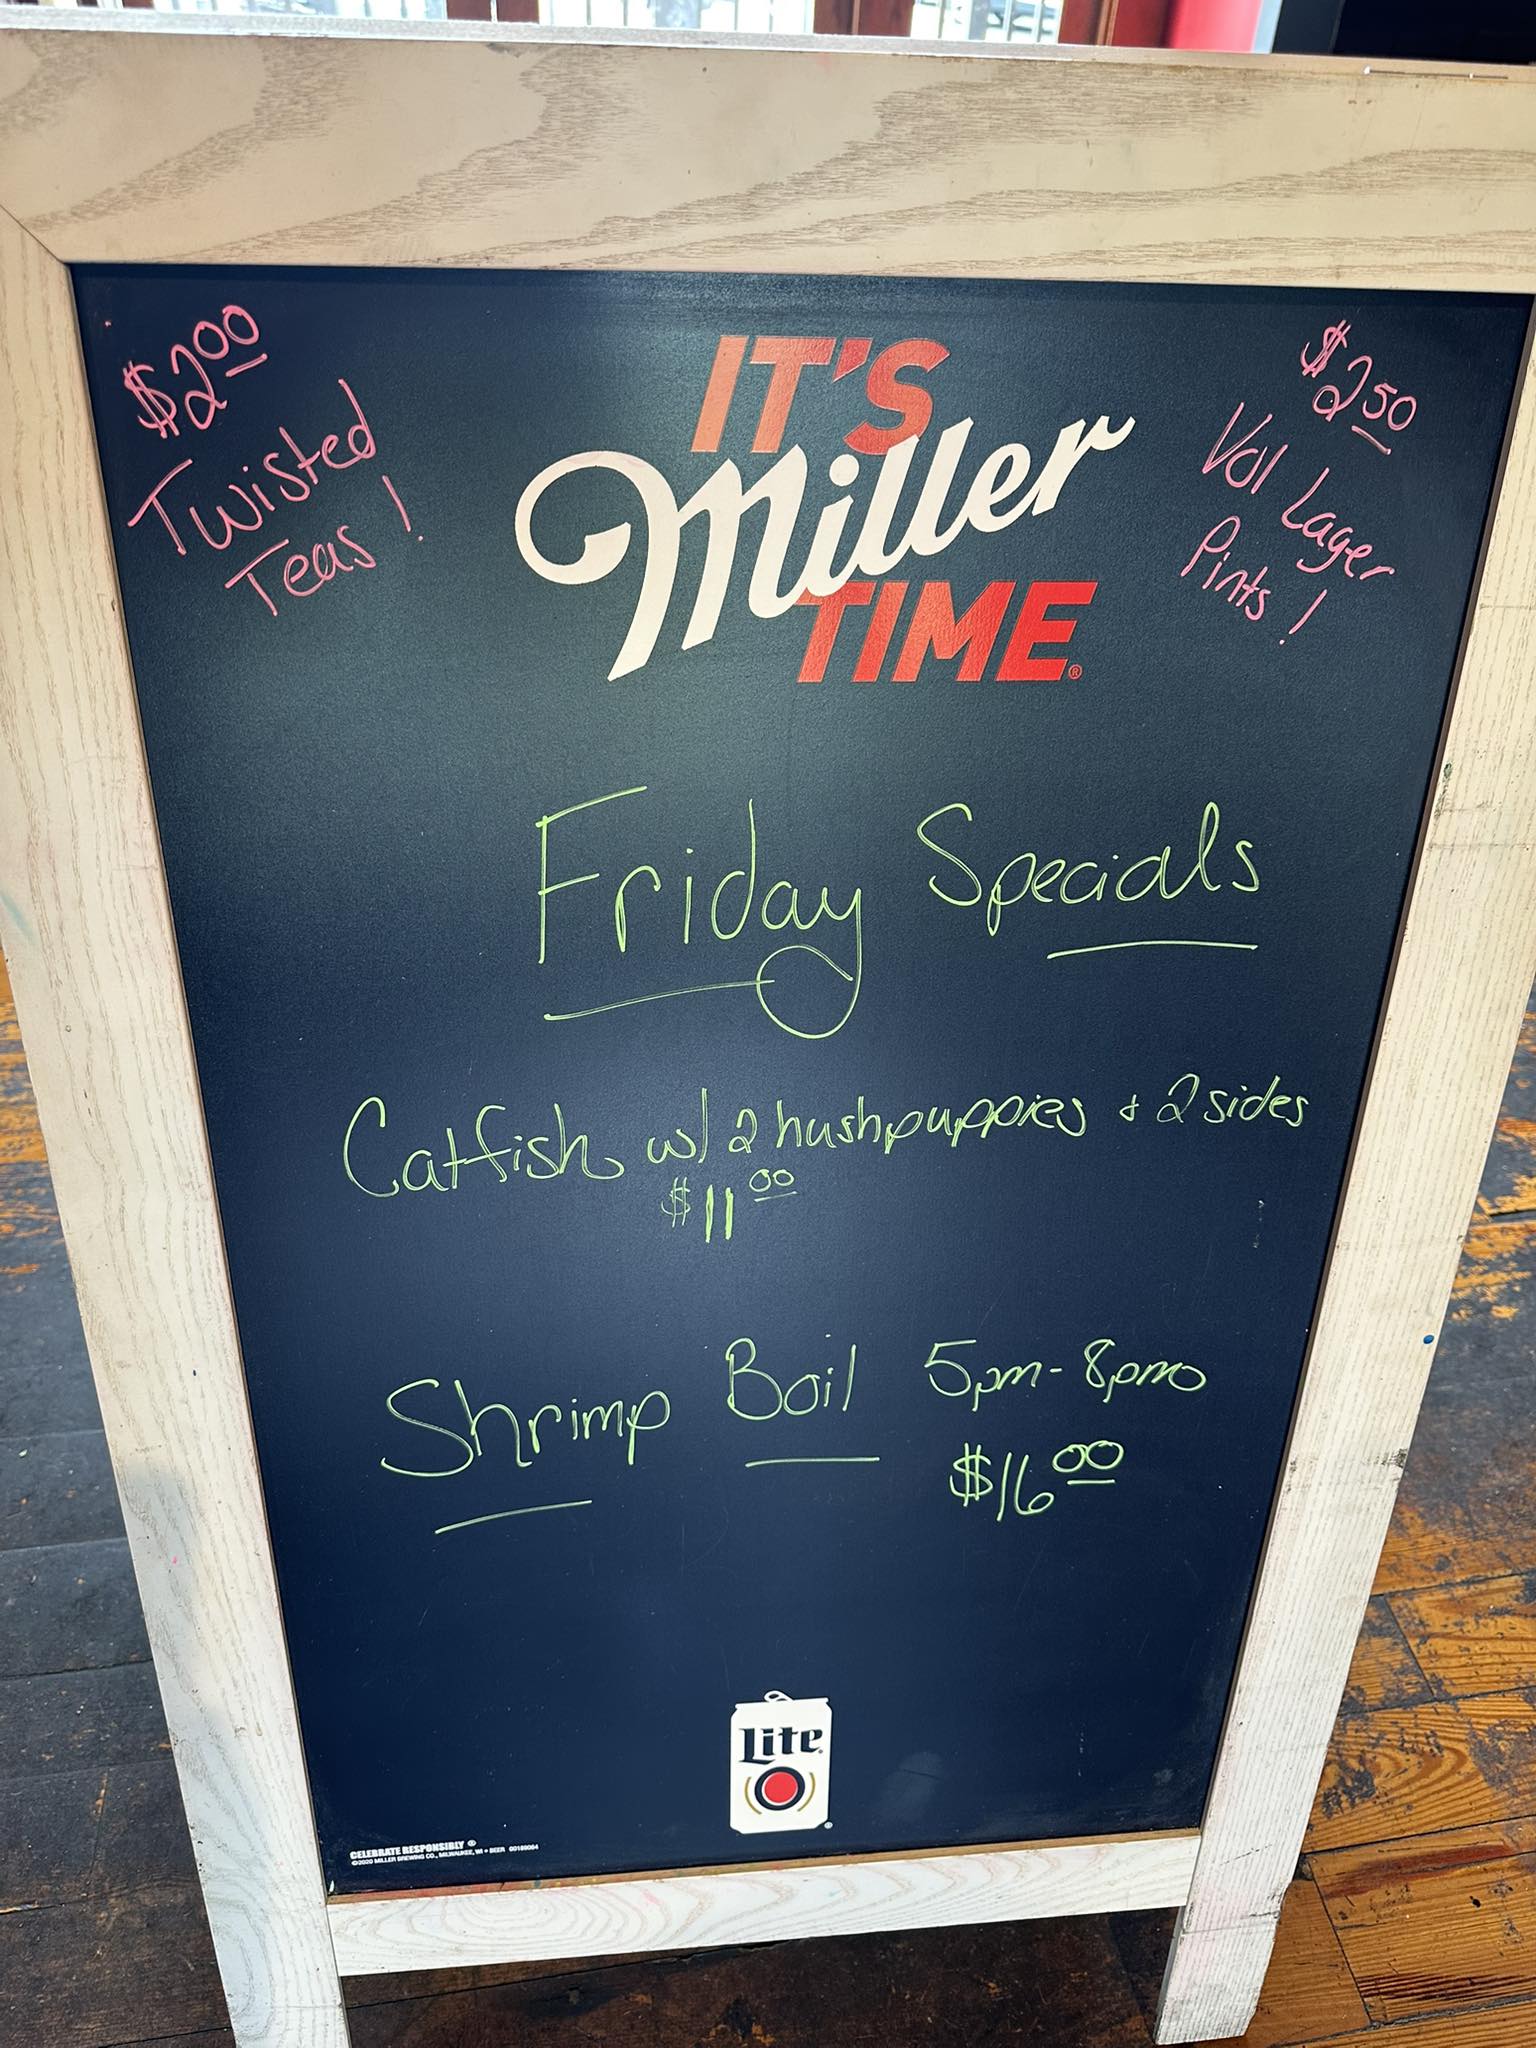 $2.00
Twisted
Teas!
IT'S
Miller
TIME®
$2.50
Vol Lager
Pints!
Friday Specials
Catfish w/ 2 hushpuppies + 2 sides
$11.00
Shrimp Boil 5pm-8pm
$16.00
Lite
CELEBRATE RESPONSIBLY ®
©2020 MILLER BREWING CO., MILWAUKEE, WI • BEER 00189064